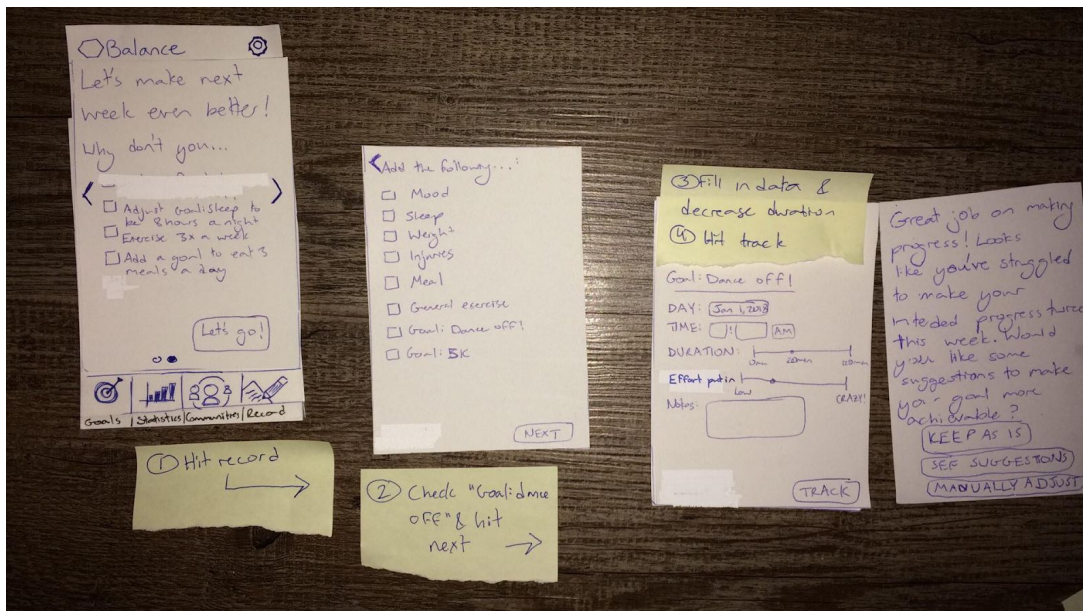 Balance
Let's make next
week even better!
Why don't you...
<
>
Adjust Goal:Sleep to
be 8 hours a night
Exercise 3x a week
Add a goal to eat 3
meals a day
Let's go!
Goals | Statistics | Communities | Record
① Hit record
<Add the following...:
Mood
Sleep
Weight
Injuries
Meal
General exercise
Goal: Dance off!
Goal: 5K
NEXT
② Check "Goal: dance
off" & hit
next
③ Fill in data &
decrease duration
④ Hit track
Goal: Dance off!
DAY: Jan 1, 2018
TIME: : AM
DURATION:
0min 20min 120min
Effort put in
Low CRAZY!
Notes:
TRACK
Great job on making
progress! Looks
like you've struggled
to make your
inteded progress twice
this week. Would
you like some
suggestions to make
your goal more
achievable?
KEEP AS IS
SEE SUGGESTIONS
MANUALLY ADJUST